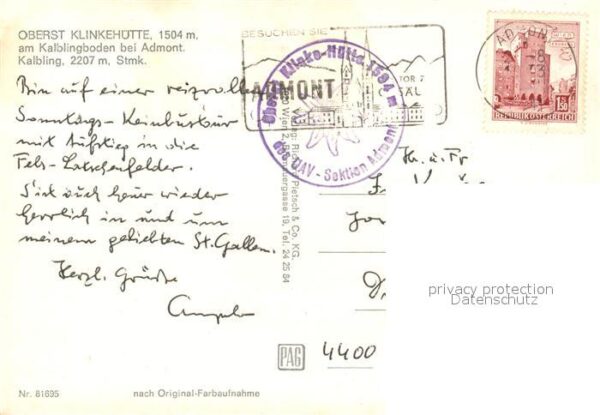 OBERST KLINKEHÜTTE, 1504 m,
am Kalblingboden bei Admont.
Kalbling, 2207 m, Stmk.
Bin auf einer reizvollen
Sonntags-
mit Aufstieg in die
Fels-Latschenfelder.
Sich auch heuer wieder
herrlich in und um
meinem geliebten St. Gallen.
Herzl. Grüsse
BESUCHEN SIE
ADMONT
TOR Z
SÄL
Oberst Klinke-Hütte 1504 m
des ÖAV - Sektion Admont
ADMONT
1.50
REPUBLIK ÖSTERREICH
Pietsch & Co. KG.
Wien 2, gasse 19, Tel. 24 25 84
4400
PAG
privacy protection
Datenschutz
Nr. 81695
nach Original-Farbaufnahme